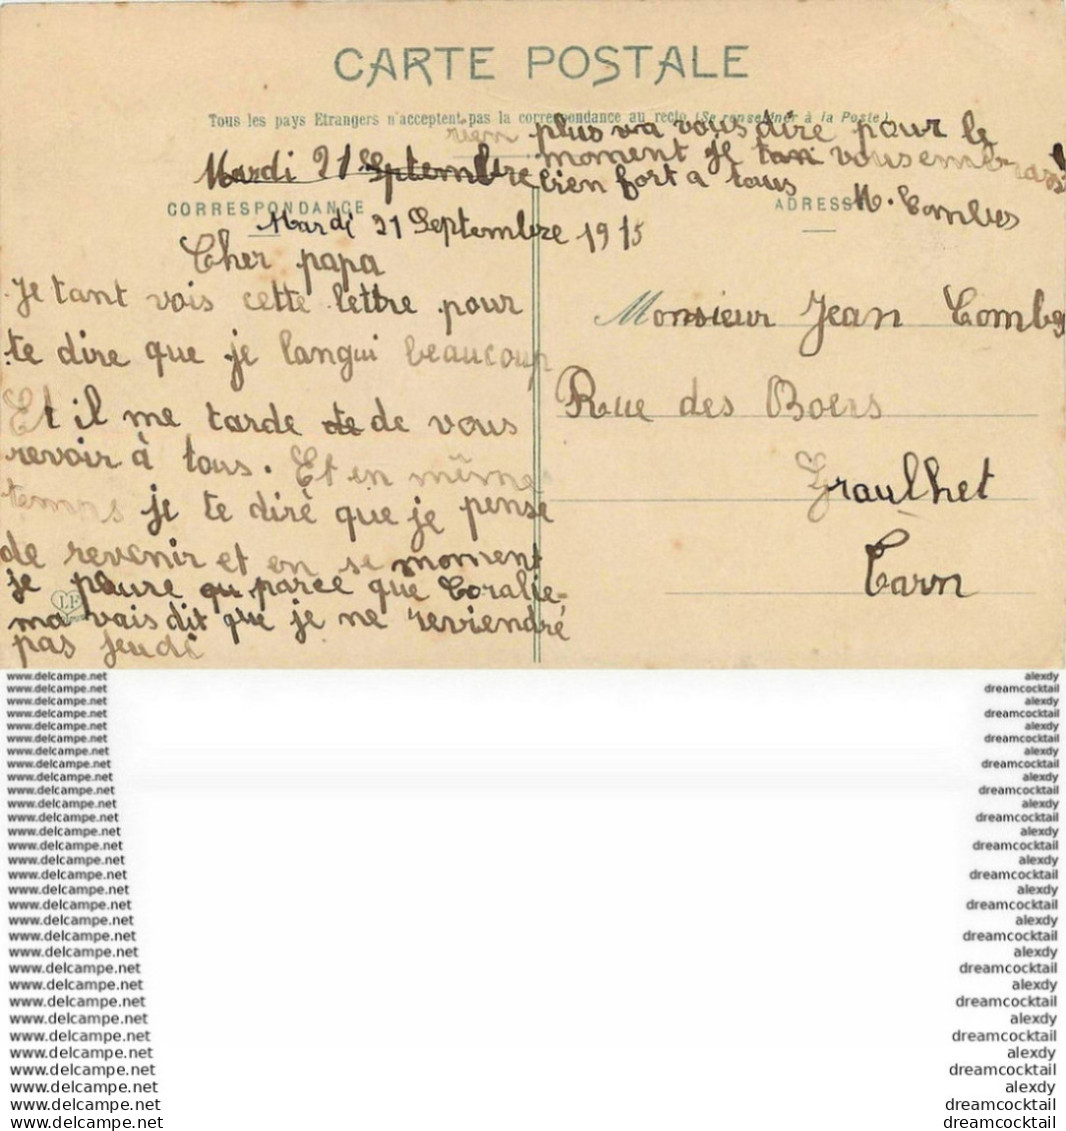 CARTE POSTALE
Tous les pays Etrangers n'acceptent pas la correspondance au recto (Se renseigner à la Poste)
rien plus va vous dire pour le
moment je tan vous embrass
bien fort a tous
M. Combes
Mardi 21 Septembre
CORRESPONDANCE
ADRESSE
Mardi 21 Septembre 1915
Cher papa
Je tant vois cette lettre pour
te dire que je langui beaucoup
Et il me tarde te de vous
revoir à tous. Et en même
temps je te dire que je pense
de revenir et en se moment
je pleure qu parce que Coralie
LF
ma vais dit que je ne reviendré
pas jeudi
Monsieur Jean Combes
Rue des Boers
Graulhet
Tarn
www.delcampe.net alexdy
www.delcampe.net dreamcocktail
www.delcampe.net alexdy
www.delcampe.net dreamcocktail
www.delcampe.net alexdy
www.delcampe.net dreamcocktail
www.delcampe.net alexdy
www.delcampe.net dreamcocktail
www.delcampe.net alexdy
www.delcampe.net dreamcocktail
www.delcampe.net alexdy
www.delcampe.net dreamcocktail
www.delcampe.net alexdy
www.delcampe.net dreamcocktail
www.delcampe.net alexdy
www.delcampe.net dreamcocktail
www.delcampe.net alexdy
www.delcampe.net dreamcocktail
www.delcampe.net alexdy
www.delcampe.net dreamcocktail
www.delcampe.net alexdy
www.delcampe.net dreamcocktail
www.delcampe.net alexdy
www.delcampe.net dreamcocktail
www.delcampe.net alexdy
www.delcampe.net dreamcocktail
www.delcampe.net alexdy
www.delcampe.net dreamcocktail
www.delcampe.net alexdy
www.delcampe.net dreamcocktail
www.delcampe.net dreamcocktail